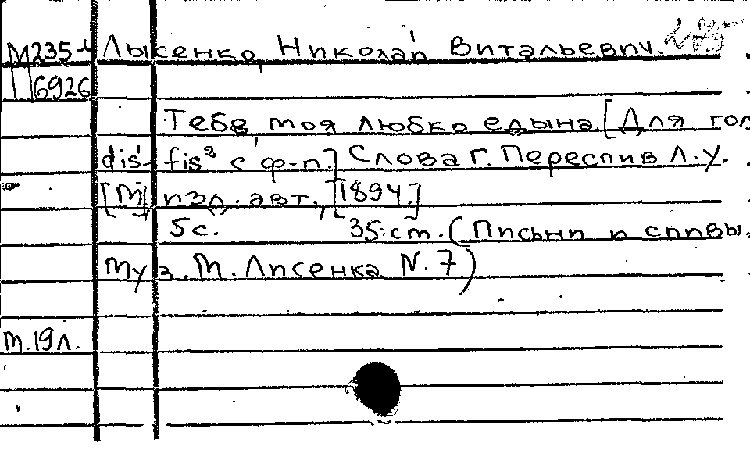 М235-1 Лысенко, Николай Витальевич. 275
6926
Тебе, моя любко едына [Для гол
dis'- fis² с ф-п.] Слова г. Переспив Л.У.
[М] изд. авт., [1894.]
5 с. 35 cm. (Письни и спивы.
Муз. М. Лисенка N. 7)
т.19л.